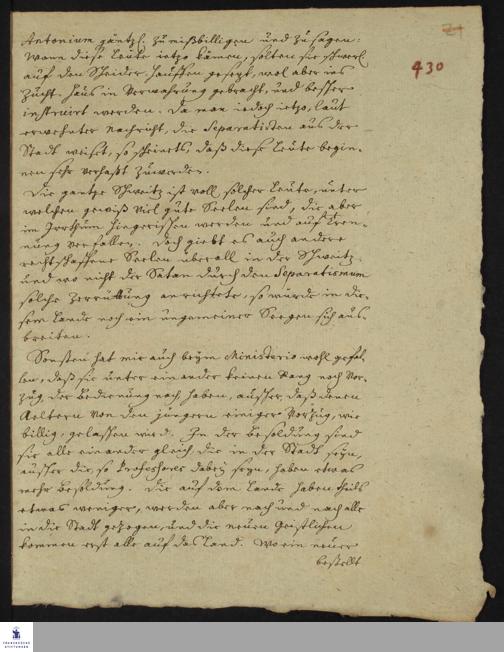 430
Antonium gäntzl. zu mißbilligen und zu sagen:
Wenn diese Leute ietzo kämen, solten sie schwerl.
auf den Scheider-Hauffen gesezt, wol aber ins
Zucht-Haus in Verwahrung gebracht, und besser
instruirt werden. Da man iedoch ietzo, laut
erwehnter Nachricht, die Separatisten aus der
Stadt weiset, so scheinets, daß diese Leute begin-
nen sehr verhaßt zu werden.
Die gantze Schweitz ist voll solcher Leute, unter
welchen gewiß viel gute Seelen sind, die aber
im Irrthum hingerissen werden und auf Tren-
nung verfallen. Doch giebt es auch andere
rechtschaffene Seelen überall in der Schweitz,
und wo nicht der Satan durch den Separatismum
solche Zerrüttung anrichtete, so würde in die-
sem Lande noch ein ungemeiner Seegen sich aus-
breiten.
Sonsten hat mir auch beym Ministerio wohl gefal-
len, daß sie unter einander keinen Rang noch Vor-
zug der Bedienung nach haben, ausser, daß denen
Aeltern von den jüngern einiger Vorzug, wie
billig, gelassen wird. In der Besoldung sind
sie alle einander gleich die in der Stadt seyn,
ausser die, so Professores dabey seyn, haben etwas
mehr Besoldung. Die auf dem Lande haben theils
etwas weniger, werden aber nach und nach alle
in die Stadt gezogen, und die neuen Geistlichen
kommen erst alle auf das Land. Wo ein neuer
bestellt
FRANCKESCHE
STIFTUNGEN